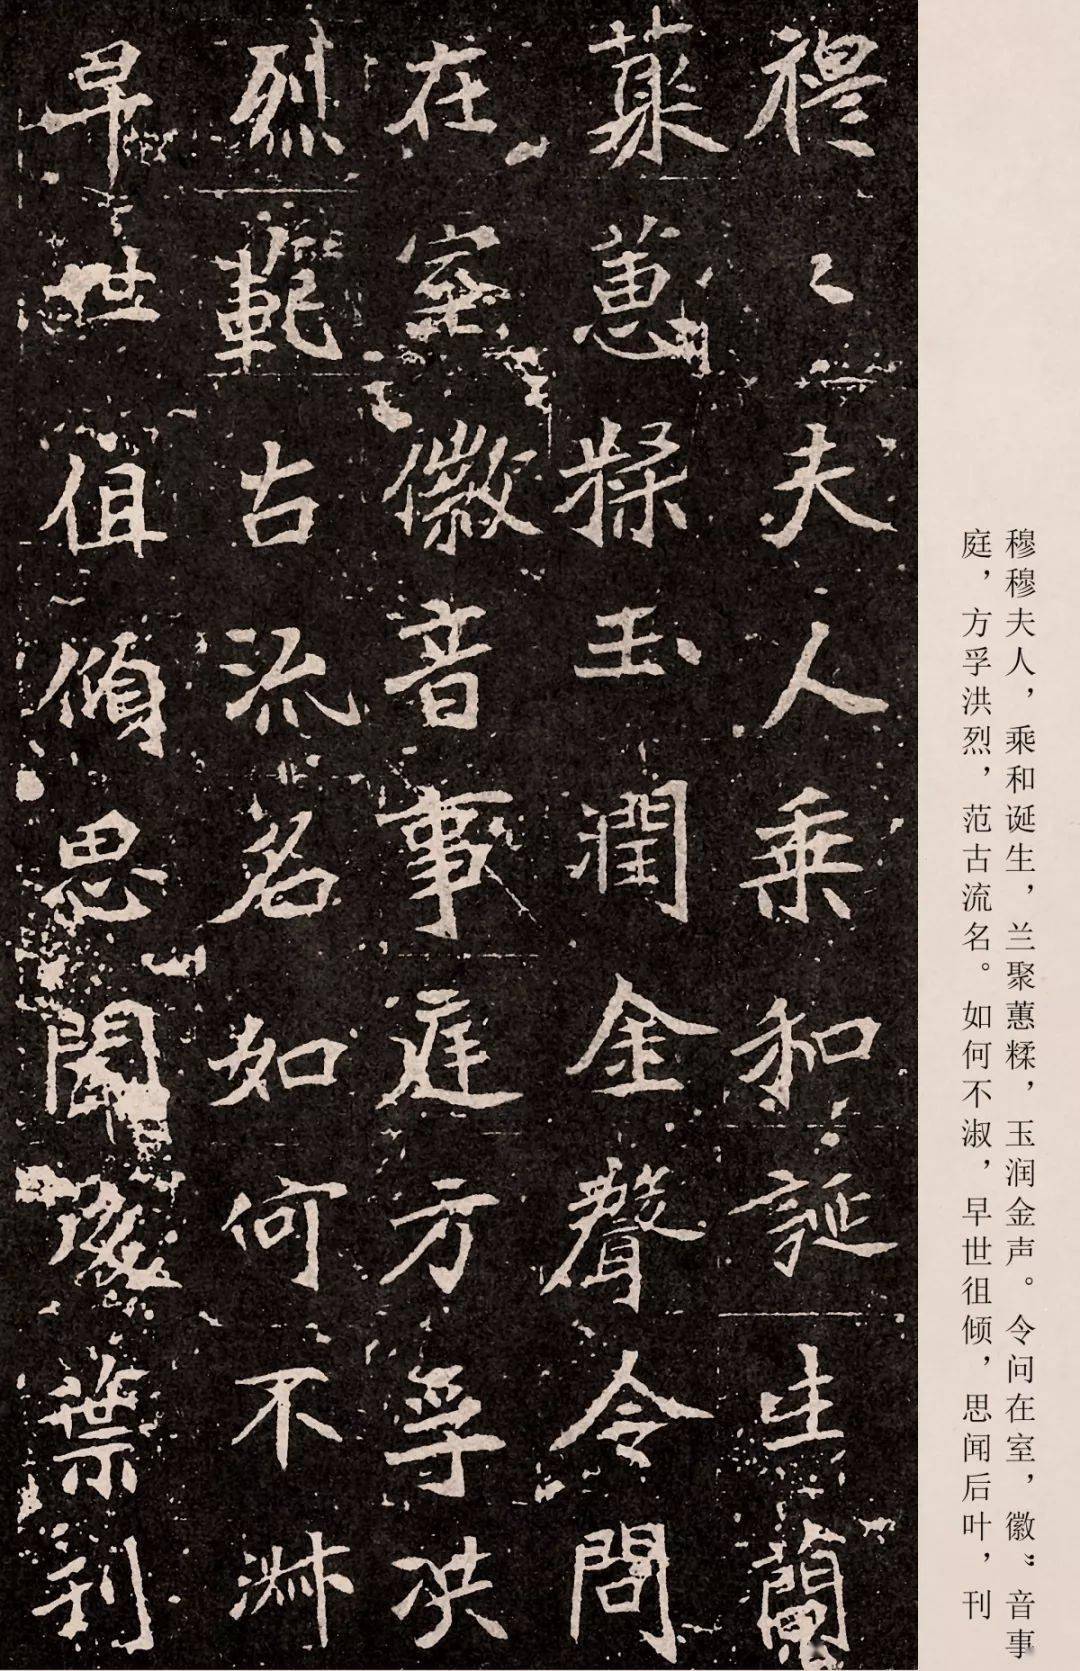 穆穆夫人，乘和诞生，兰聚蕙糅，玉润金声。令问在室，徽”音事
庭，方孚洪烈，范古流名。如何不淑，早世徂倾，思闻后叶，刊
穆〻夫人乘和誕生蘭
藂蕙糅玉潤金聲令問
在室徽音事庭方孚洪
烈範古流名如何不淋
早世徂傾思聞後葉刊